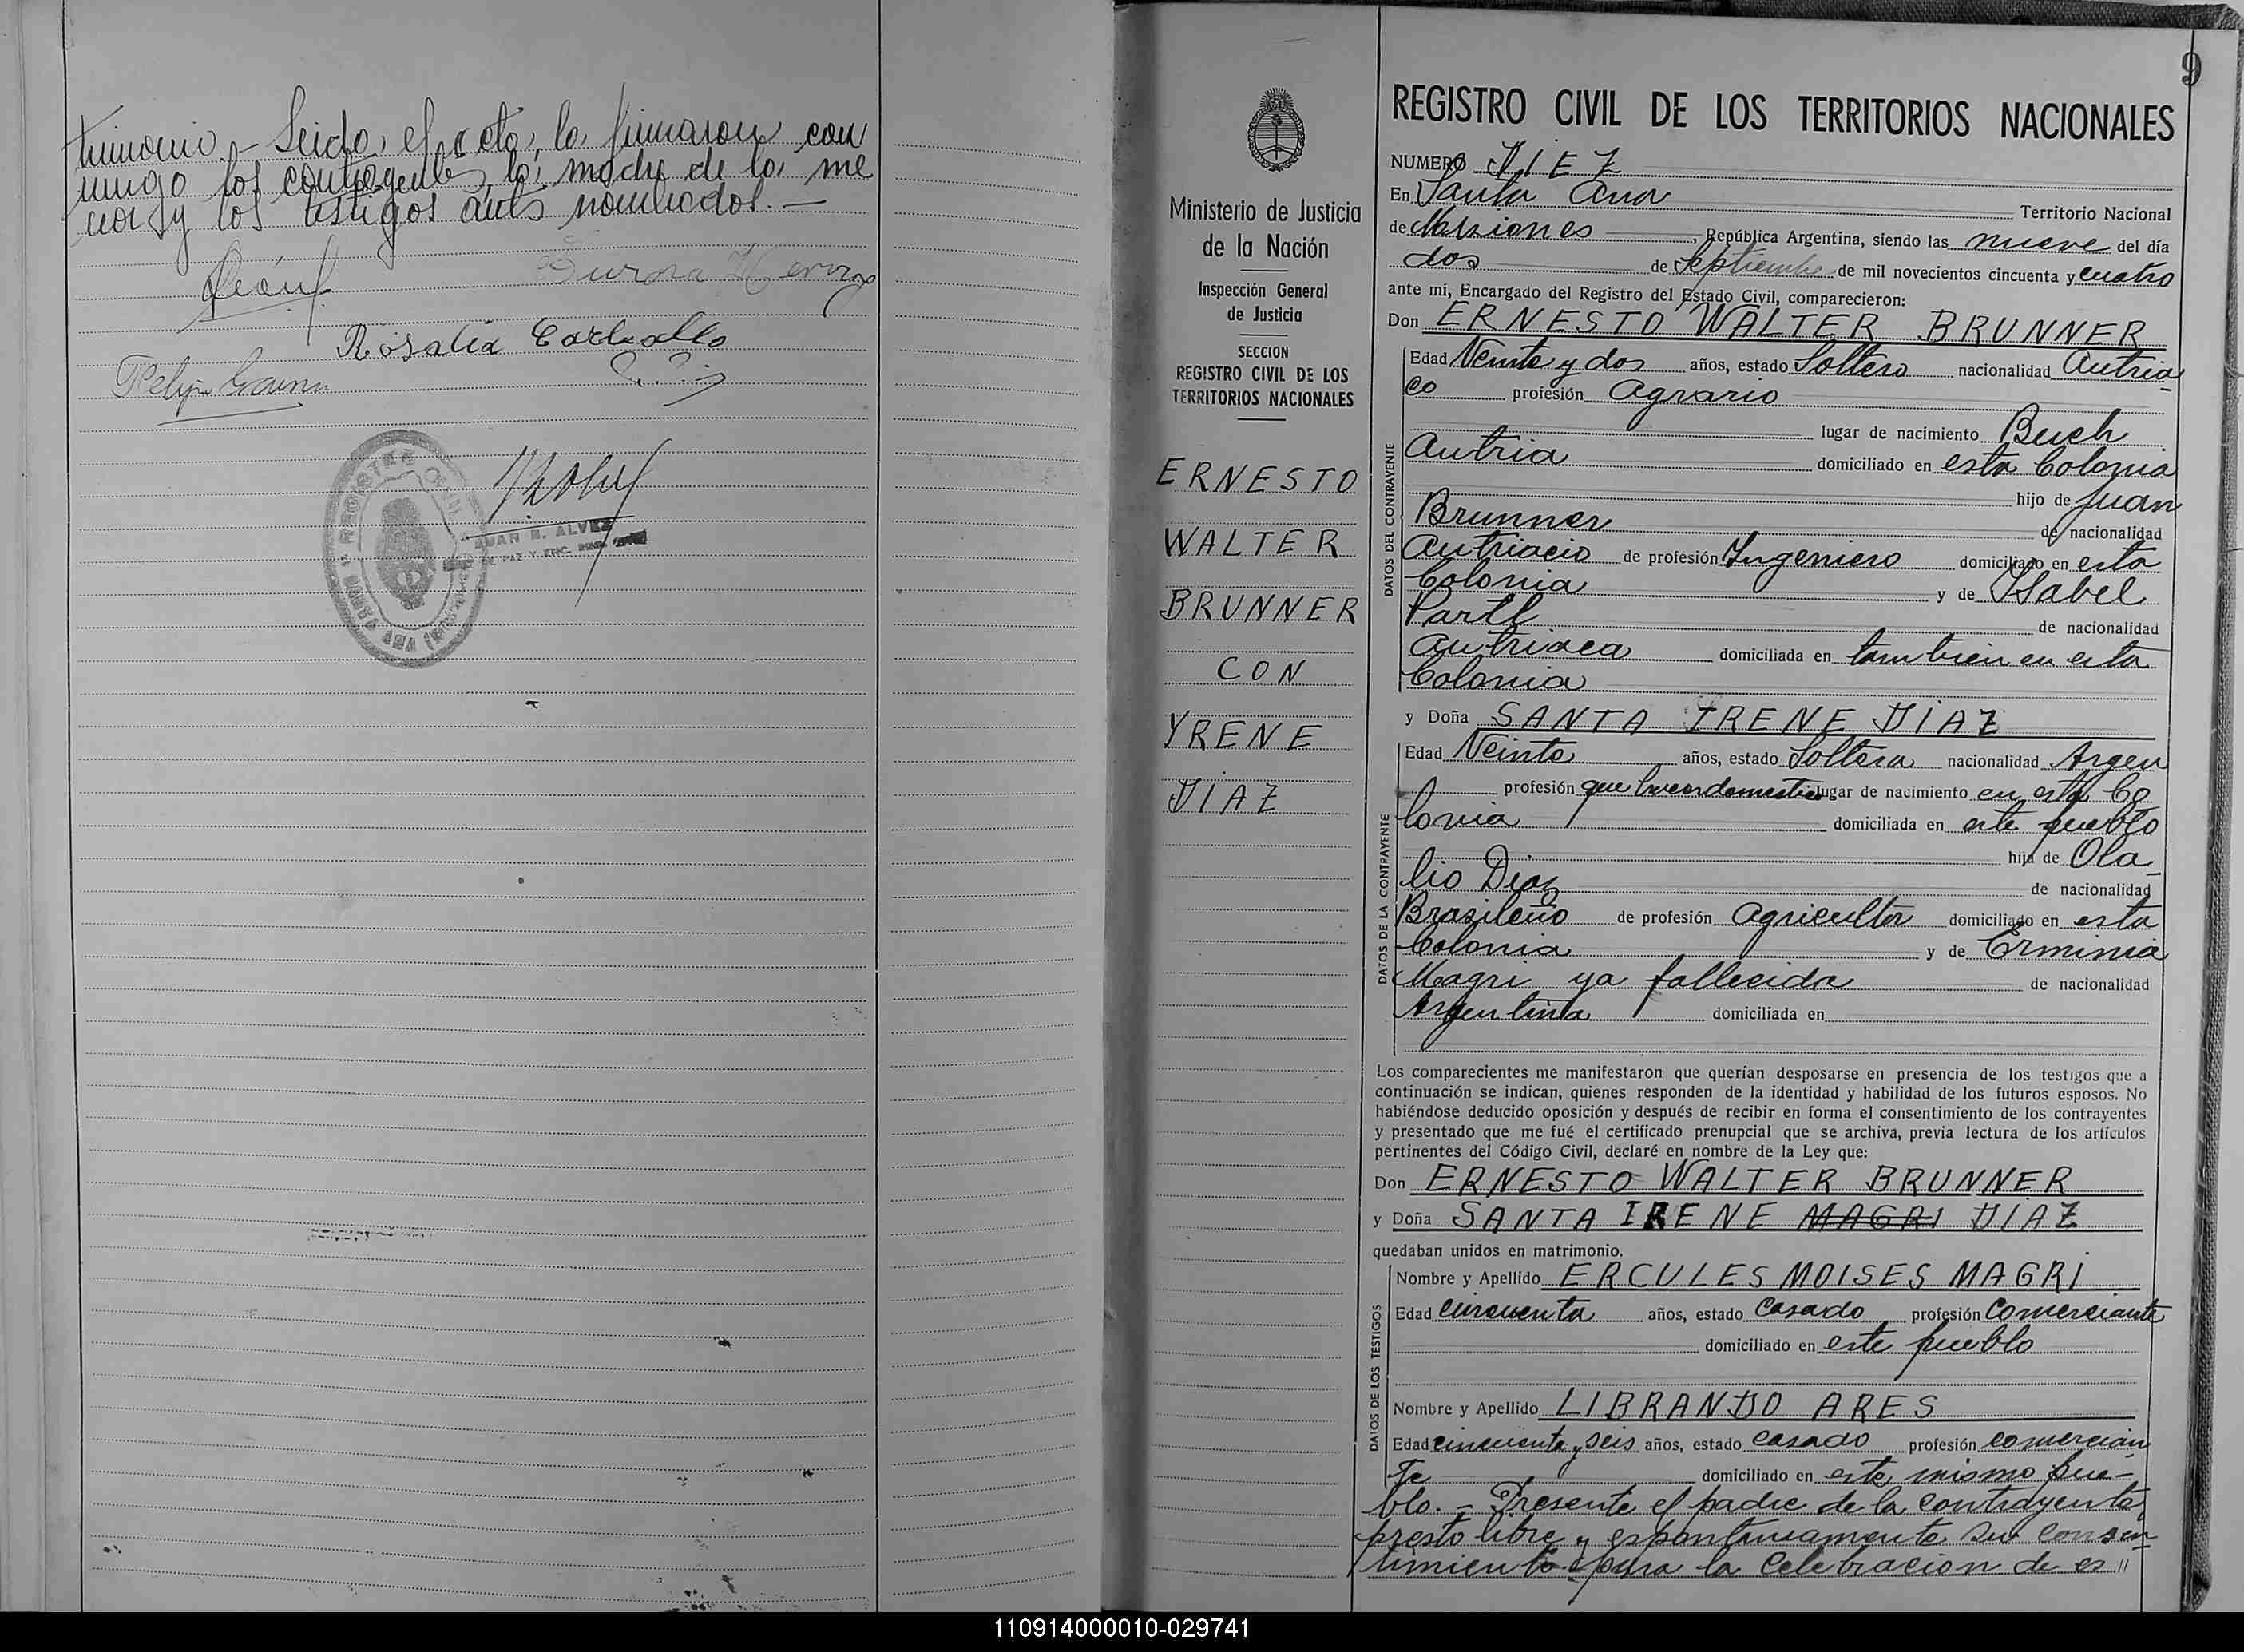 trimonio.- Leida, el acta, la firmaron con
migo los contrayentes, la madre de la me
nor y los testigos antes nombrados.-
Aurora
Rosalia Carballo
REGISTRO CIVIL
SANTA ANA
JUAN R. ALVEZ
DE PAZ Y ENC.
9
Ministerio de Justicia
de la Nación
Inspección General
de Justicia
SECCION
REGISTRO CIVIL DE LOS
TERRITORIOS NACIONALES
ERNESTO
WALTER
BRUNNER
CON
YRENE
DIAZ
REGISTRO CIVIL DE LOS TERRITORIOS NACIONALES
NUMERO DIEZ
En Santa Ana Territorio Nacional
de Misiones, República Argentina, siendo las nueve del día
dos de Septiembre de mil novecientos cincuenta y cuatro
ante mí, Encargado del Registro del Estado Civil, comparecieron:
Don ERNESTO WALTER BRUNNER
DATOS DEL CONTRAYENTE
Edad Veinte y dos años, estado Soltero nacionalidad Autria-
co profesión Agrario
lugar de nacimiento Buch
Autria domiciliado en esta Colonia
hijo de Juan
Brunner de nacionalidad
Autriacio de profesión Ingeniero domiciliado en esta
Colonia y de Isabel
Partl de nacionalidad
Autriaca domiciliada en tambien en esta
Colonia
y Doña SANTA IRENE DIAZ
DATOS DE LA CONTRAYENTE
Edad Veinte años, estado Soltera nacionalidad Argen
profesión que haceres domestico lugar de nacimiento en esta Co-
lonia domiciliada en este pueblo
hija de Ola-
lio Diaz de nacionalidad
Brazileño de profesión Agricultor domiciliado en esta
Colonia y de Erminia
Magri ya fallecida de nacionalidad
Argentina domiciliada en
Los comparecientes me manifestaron que querían desposarse en presencia de los testigos que a
continuación se indican, quienes responden de la identidad y habilidad de los futuros esposos. No
habiéndose deducido oposición y después de recibir en forma el consentimiento de los contrayentes
y presentado que me fué el certificado prenupcial que se archiva, previa lectura de los artículos
pertinentes del Código Civil, declaré en nombre de la Ley que:
Don ERNESTO WALTER BRUNNER
y Doña SANTA IRENE MAGRI DIAZ
quedaban unidos en matrimonio.
DATOS DE LOS TESTIGOS
Nombre y Apellido ERCULES MOISES MAGRI
Edad cincuenta años, estado Casado profesión Comerciante
domiciliado en este pueblo
Nombre y Apellido LIBRANDO ARES
Edad cincuenta y seis años, estado casado profesión comercian
te domiciliado en este mismo pue-
blo.- Presente el padre de la contrayente
presto libre y espontaneamente su consen-
timiento para la celebracion de es "
110914000010-029741